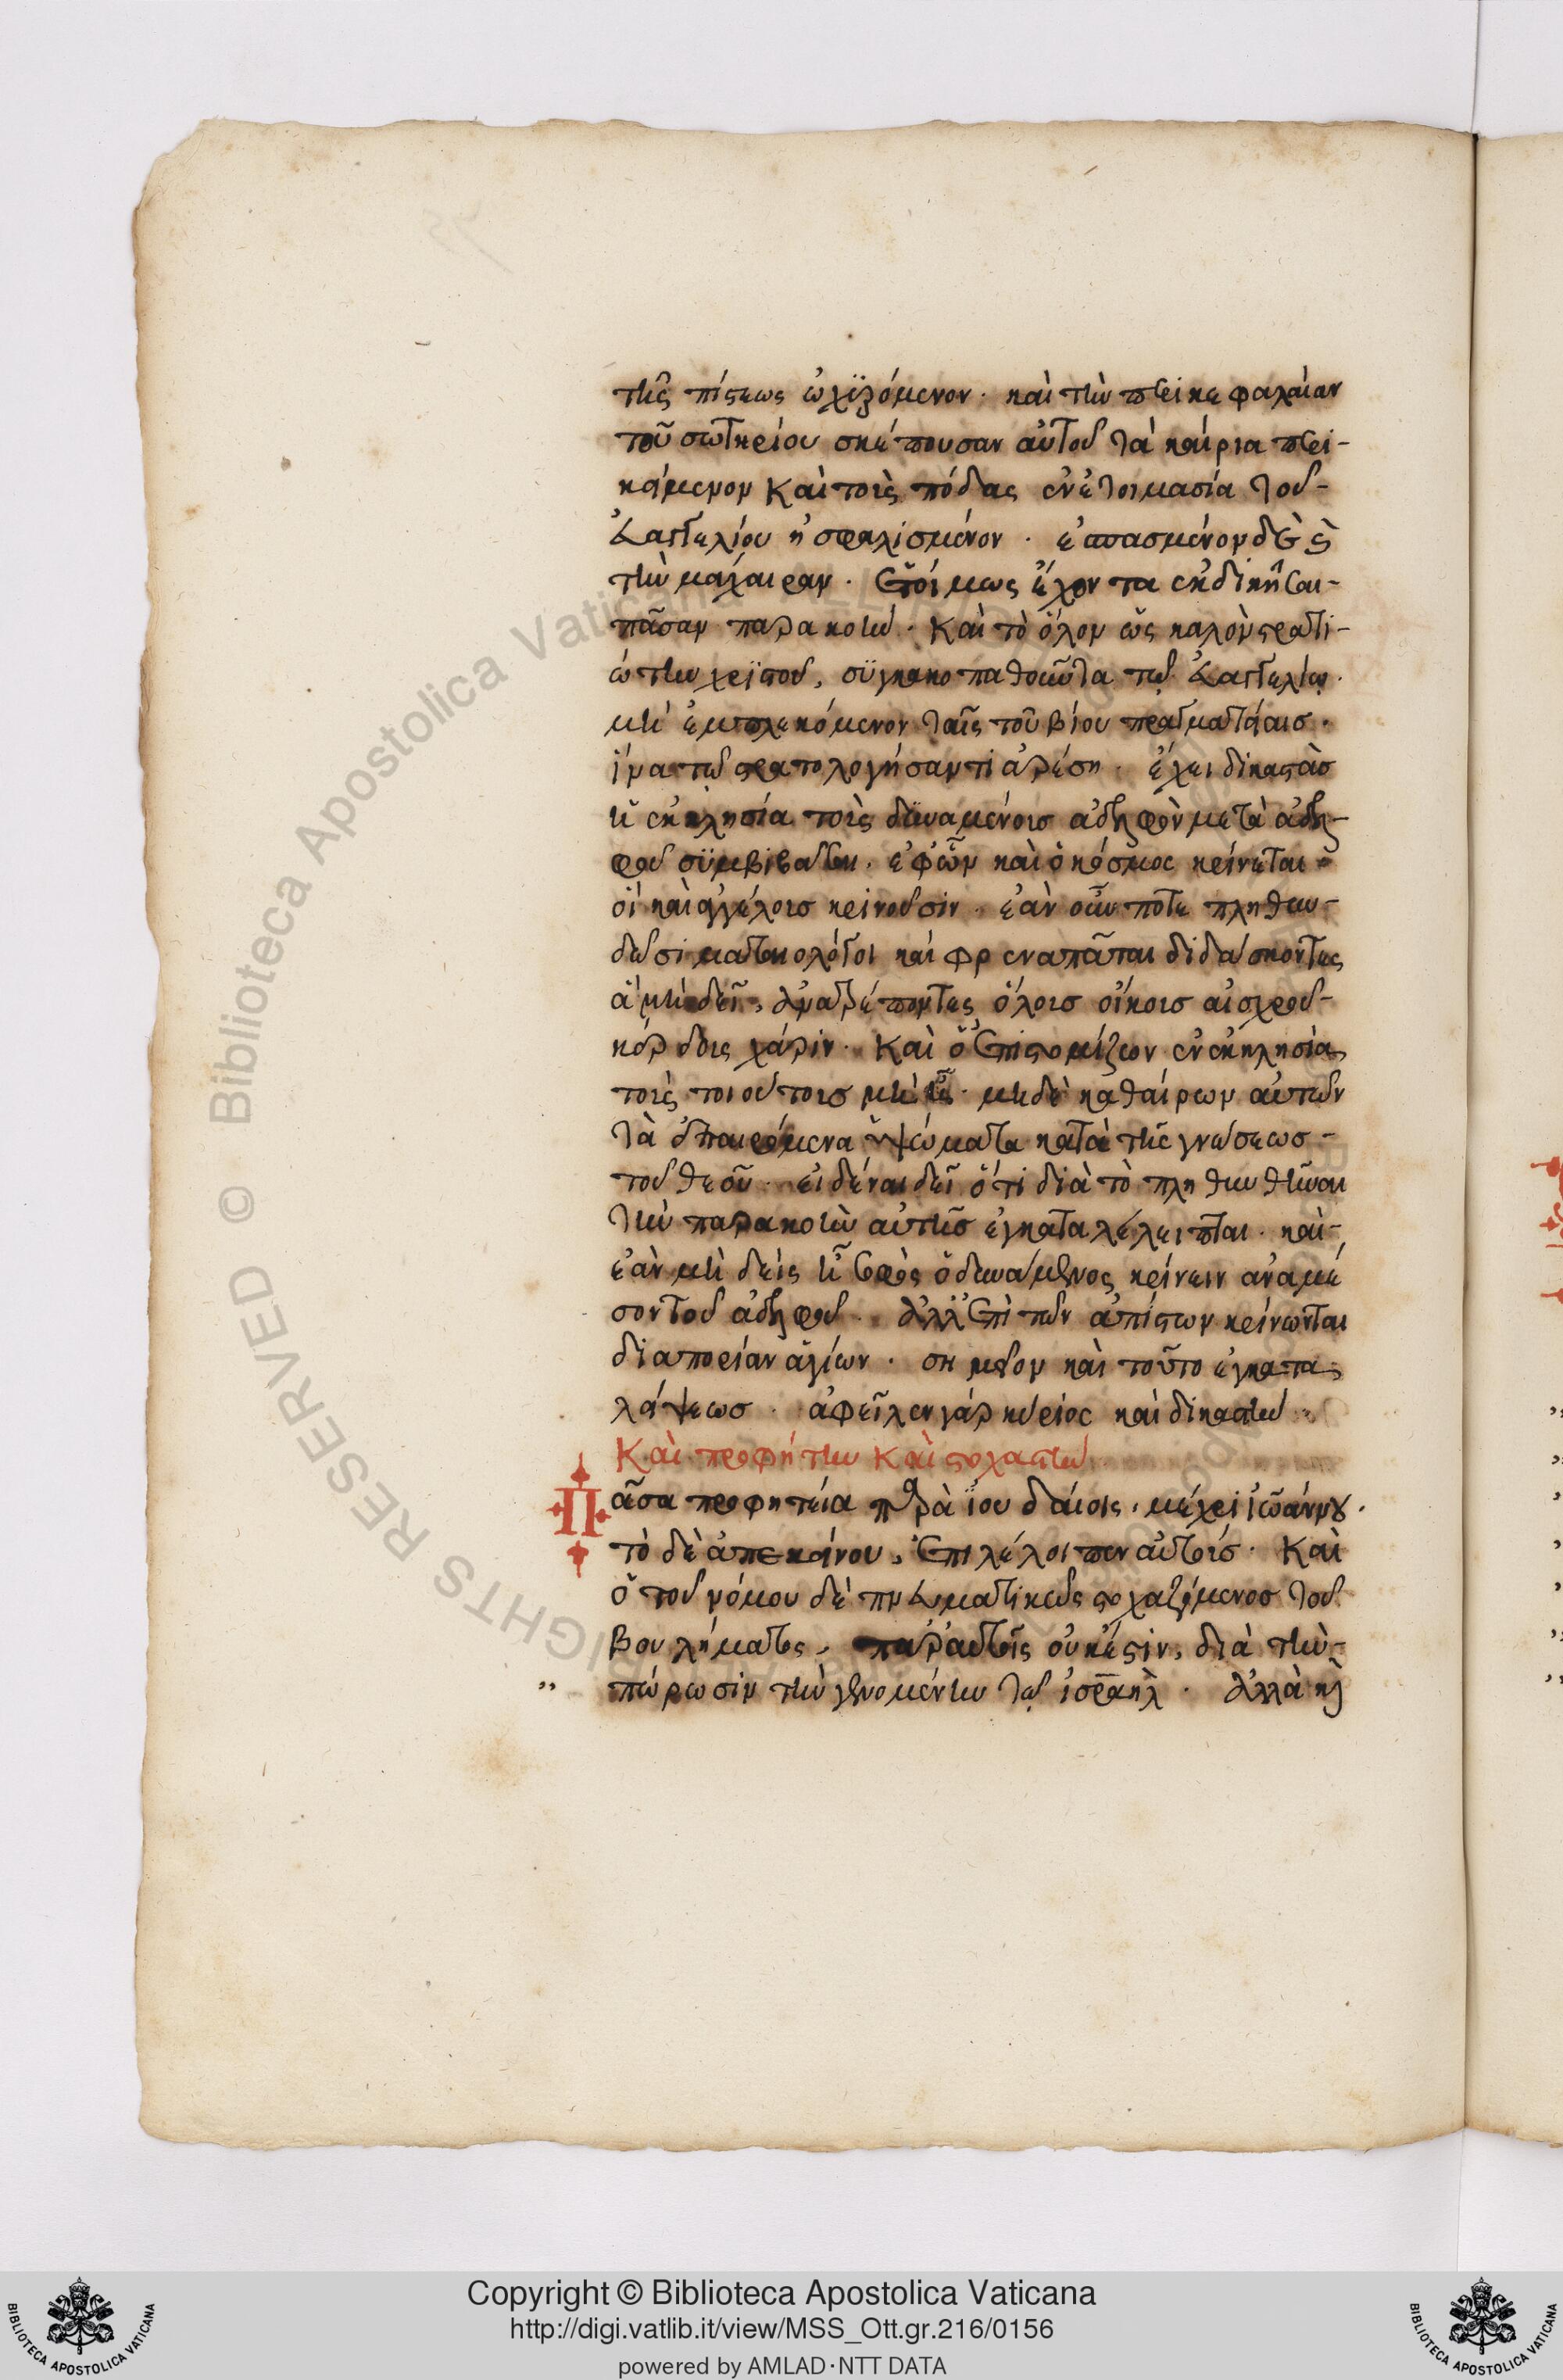 τῆς πίστεως ὀχϋζόμενον. καὶ τὴν περικεφαλαίαν
τοῦ σωτηρίου σκέπουσαν αὐτοῦ τὰ καίρια περι-
κείμενον καὶ τοὺς πόδας ἐν ἑτοιμασία τοῦ-
εὐαγγελίου ἠσφαλισμένον. ἐσπασμένον δὲ καὶ
τὴν μάχαιραν. ἑτοίμως ἔχοντα ἐκδικῆσαι-
πᾶσαν παρακοὴν. καὶ τὸ ὅλον ὡς καλὸν στρατι-
ώτην χριστοῦ, συγκακοπαθοῦντα τῷ εὐαγγελίῳ.
μὴ ἐμπλεκόμενον ταῖς τοῦ βίου πραγματείαισ.
ἵνα τῷ στρατολογήσαντι ἀρέση. ἔχει δικαστὰσ
ἡ ἐκκλησία τοὺς δυναμένουσ ἀδελφὸν μετὰ ἀδελ-
φοῦ συμβιβάσαι. ἐφ' ὧν καὶ ὁ κόσμος κρίνεται
οἳ καὶ ἀγγέλουσ κρινοῦσιν. ἐὰν οὖν ποτε πληθυν-
θῶσι ματαιολόγοι καὶ φρεναπάται διδάσκοντες
ἃ μὴ δεῖ, ἀνατρέποντες ὅλουσ οἴκουσ αἰσχροῦ-
κέρδους χάριν. καὶ ὁ ἐπιστομίζων ἐν ἐκκλησία
τοὺς τοιούτουσ μὴ ἦ. μηδὲ καθαίρων αὐτῶν
τὰ ἐπαιρόμενα ὑψώματα κατὰ τῆς γνώσεωσ-
τοῦ θεοῦ. εἰδέναι δεῖ ὅτι διὰ τὸ πληθυνθῆναι
τὴν παρακοὴν αὐτῆσ ἐγκαταλέλειπται. καὶ-
ἐὰν μηδεὶς ἦ σοφὸς ὁ δυνάμενος κρίνειν ἀναμέ
σον τοῦ ἀδελφοῦ. ἀλλ' ἐπὶ τῶν ἀπίστων κρίνωνται
δι' ἀπορίαν ἁγίων. σημεῖον καὶ τοῦτο ἐγκατα
λείψεωσ. ἀφεῖλεν γὰρ κύριος καὶ δικαστὴν
Καὶ προφήτην καὶ στοχαστὴν
Πᾶσα προφητεία παρὰ ἰουδαίοις, μέχρι ἰωάννου.
τὸ δὲ ἀπεκείνου, ἐπιλέλοιπεν αὐτοὺσ. Καὶ
ὁ τοῦ νόμου δὲ πνευματικῶς στοχαζόμενοσ τοῦ
βουλήματος, παρ' αὐτοῖς οὐκέστιν, διὰ τὴν-
" πώρωσιν τὴν γενομένην τῷ ἰσραὴλ. ἀλλὰ καὶ
Copyright © Biblioteca Apostolica Vaticana
http://digi.vatlib.it/view/MSS_Ott.gr.216/0156
powered by AMLAD·NTT DATA